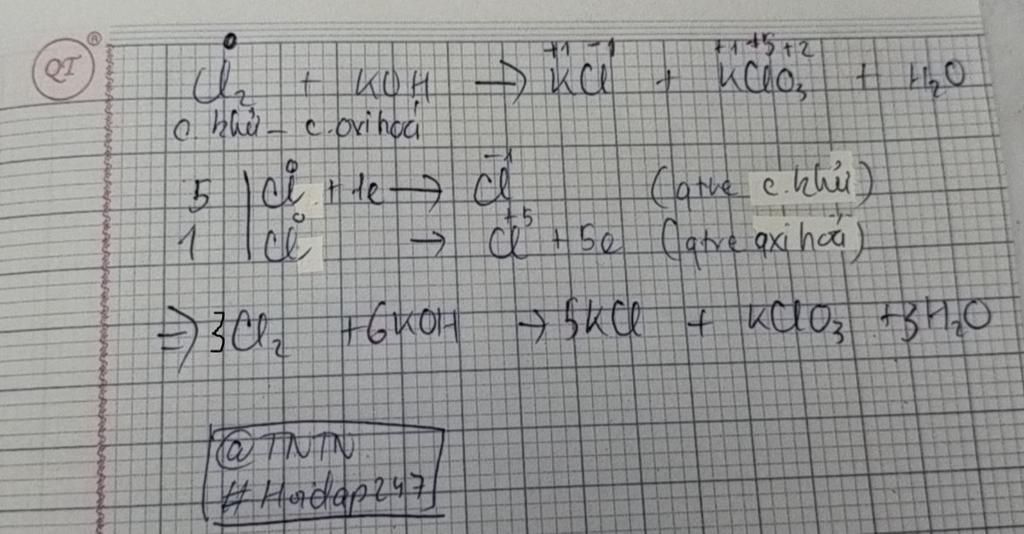 QI ®
0
Cl₂ + KOH → KCl + KClO₃ + H₂O
+1 -1 +1 +5 +2
c. khử - c. oxi hoá
5 | Cl⁰ + 1e → Cl⁻¹ (qtre c.khử)
1 | Cl⁰ → Cl⁺⁵ + 5e (qtre oxi hoá)
⇒ 3Cl₂ + 6KOH → 5KCl + KClO₃ + 3H₂O
@TNTN
#Hoidap247